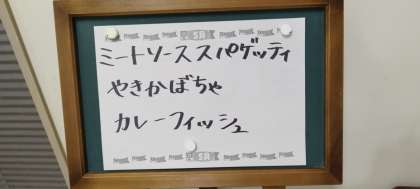 ミートソーススパゲッティ
やきかぼちゃ
カレーフィッシュ